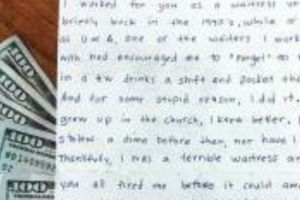 I worked for you as a waitress
briefly back in the 1990's, while
at U of A. One of the waiters I work
with had encouraged me to "forget" to
in a few drinks a shift and pocket the
And for some stupid reason, I did it.
grew up in the church, I knew better,
stolen a dime before then, nor have I
Thankfully, I was a terrible waitress and
you all fired me before it could
100
100
100
100
100